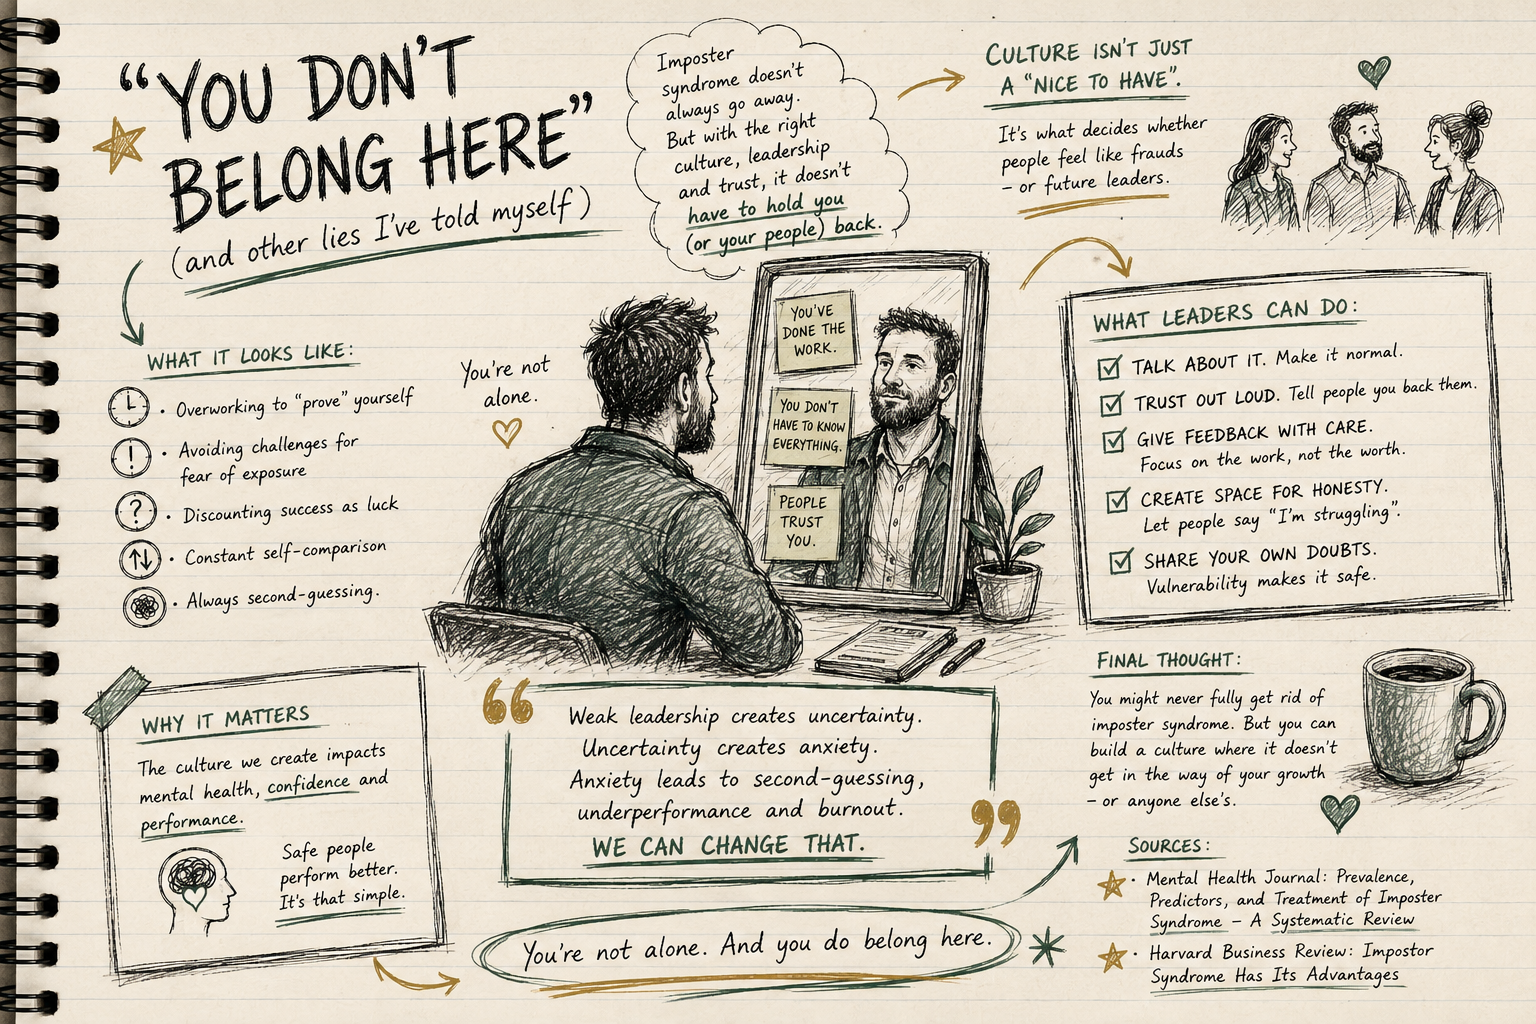 “YOU DON’T
BELONG HERE”
(and other lies I’ve told myself)
Imposter
syndrome doesn’t
always go away.
But with the right
culture, leadership
and trust, it doesn’t
have to hold you
(or your people) back.
CULTURE ISN’T JUST
A “NICE TO HAVE”.
It’s what decides whether
people feel like frauds
– or future leaders.
WHAT IT LOOKS LIKE:
• Overworking to “prove” yourself
• Avoiding challenges for
fear of exposure
• Discounting success as luck
• Constant self-comparison
• Always second-guessing.
You’re not
alone.
YOU’VE
DONE THE
WORK.
YOU DON’T
HAVE TO KNOW
EVERYTHING.
PEOPLE
TRUST
YOU.
WHAT LEADERS CAN DO:
TALK ABOUT IT. Make it normal.
TRUST OUT LOUD. Tell people you back them.
GIVE FEEDBACK WITH CARE.
Focus on the work, not the worth.
CREATE SPACE FOR HONESTY.
Let people say “I’m struggling”.
SHARE YOUR OWN DOUBTS.
Vulnerability makes it safe.
WHY IT MATTERS
The culture we create impacts
mental health, confidence and
performance.
Safe people
perform better.
It’s that simple.
“ Weak leadership creates uncertainty.
Uncertainty creates anxiety.
Anxiety leads to second-guessing,
underperformance and burnout. ”
WE CAN CHANGE THAT.
You’re not alone. And you do belong here.
FINAL THOUGHT:
You might never fully get rid of
imposter syndrome. But you can
build a culture where it doesn’t
get in the way of your growth
– or anyone else’s.
SOURCES:
• Mental Health Journal: Prevalence,
Predictors, and Treatment of Imposter
Syndrome – A Systematic Review
• Harvard Business Review: Impostor
Syndrome Has Its Advantages